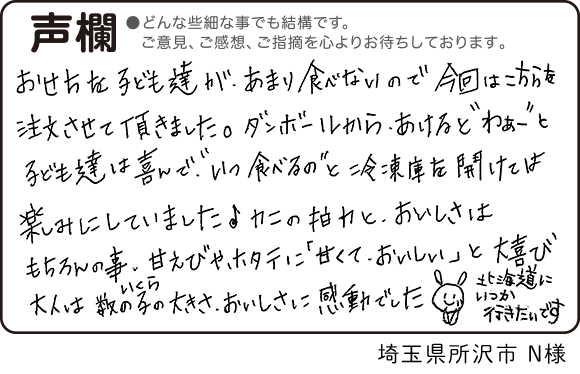 声欄
●どんな些細な事でも結構です。
ご意見、ご感想、ご指摘を心よりお待ちしております。
おせちを子ども達が、あまり食べないので今回はこちらを
注文させて頂きました。ダンボールから、あけると"わぁー"と
子ども達は喜んで、"いつ食べるの"と冷凍庫を開けては
楽しみにしていました♪カニの迫力と、おいしさは
もちろんの事、甘えびや、ホタテに「甘くて、おいしい」と大喜び
大人は数の子いくらの大きさ、おいしさに感動でした
北海道に
いつか
行きたいです
埼玉県所沢市 N様